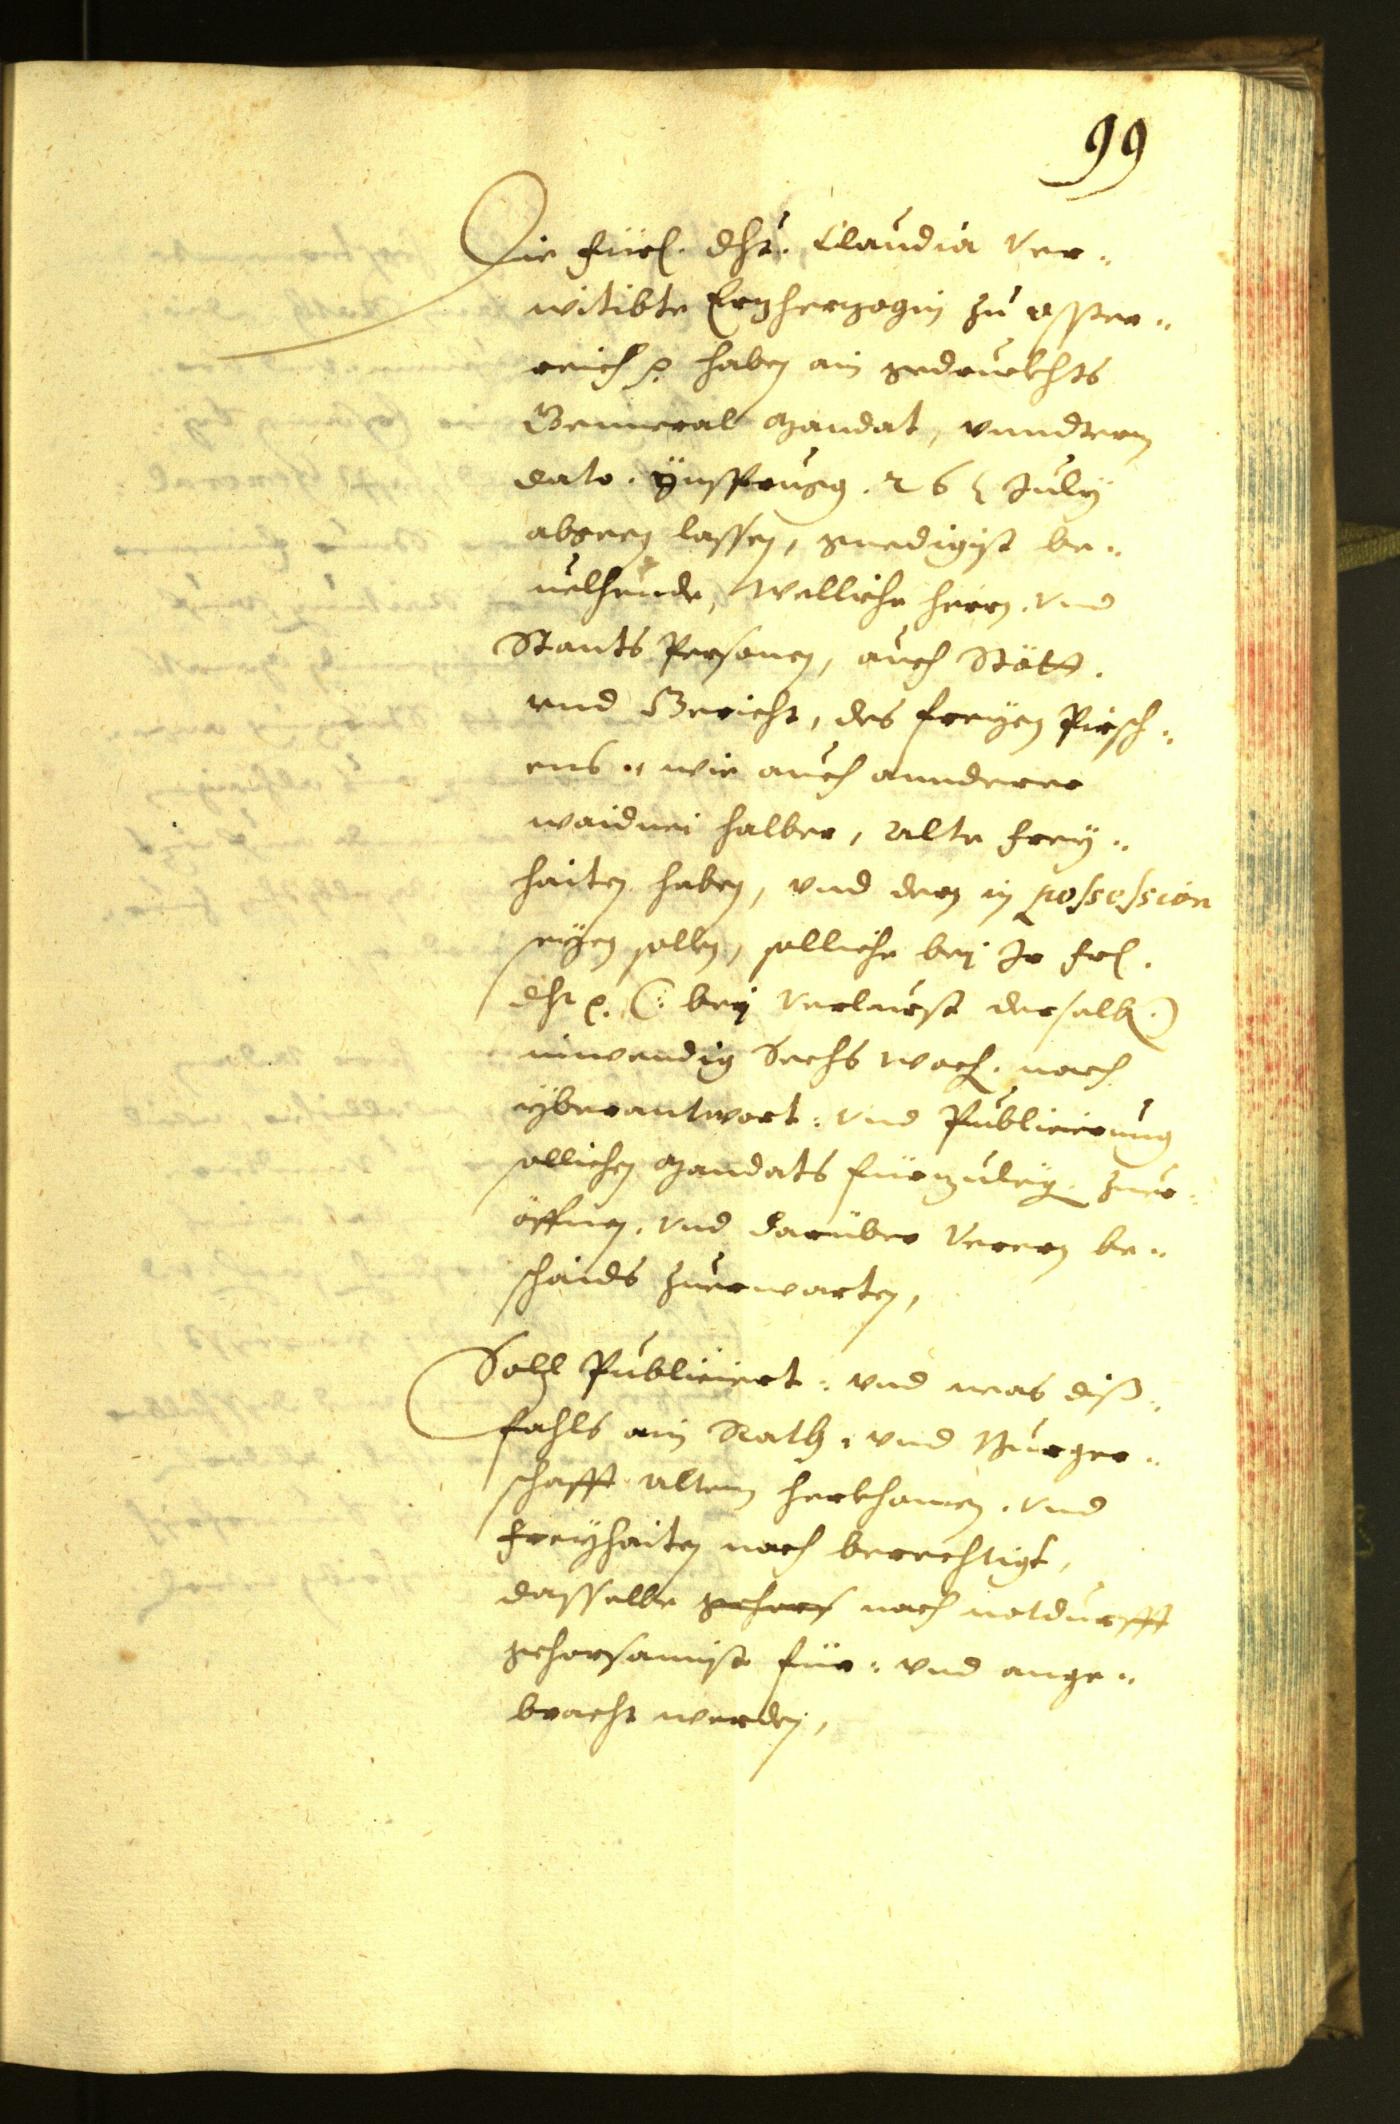 99
Die fürl. dht. Claudia Ver¬
witibte Erzherzogin zu össter¬
reich p. haben ain gedruckhts
General Mandat, vnnderm
dato. Ynsprugg. 26 July
abgeen lassen, gnedigist be¬
uelhende, Welliche herrn. vnd
Stants Personen, auch Stött.
vnd Gericht, des freyen Pirsch¬
ens¬ wie auch annderer
waidnei halber, Alte frey¬
haiten haben, vnd dern in possession
seyen sollen, solliche bej Ir frl.
dht p. (: bej Verlurst derselb. :)
innwendig Sechs Woch. nach
yberantwort¬ vnd Publicierung
sollichen Mandats fürzuleg. zuer¬
öffnen, vnd darüber Verern be¬
schaids zuerwarten,
Solle Publiciert¬ vnd was diß¬
fahls ain Rath¬ vnd Burger¬
schafft altem herkhomen. vnd
freyhaiten nach berechtigt,
dasselbe gehors nach notdurfft
gehorsamist für¬ vnd ange¬
bracht werden,